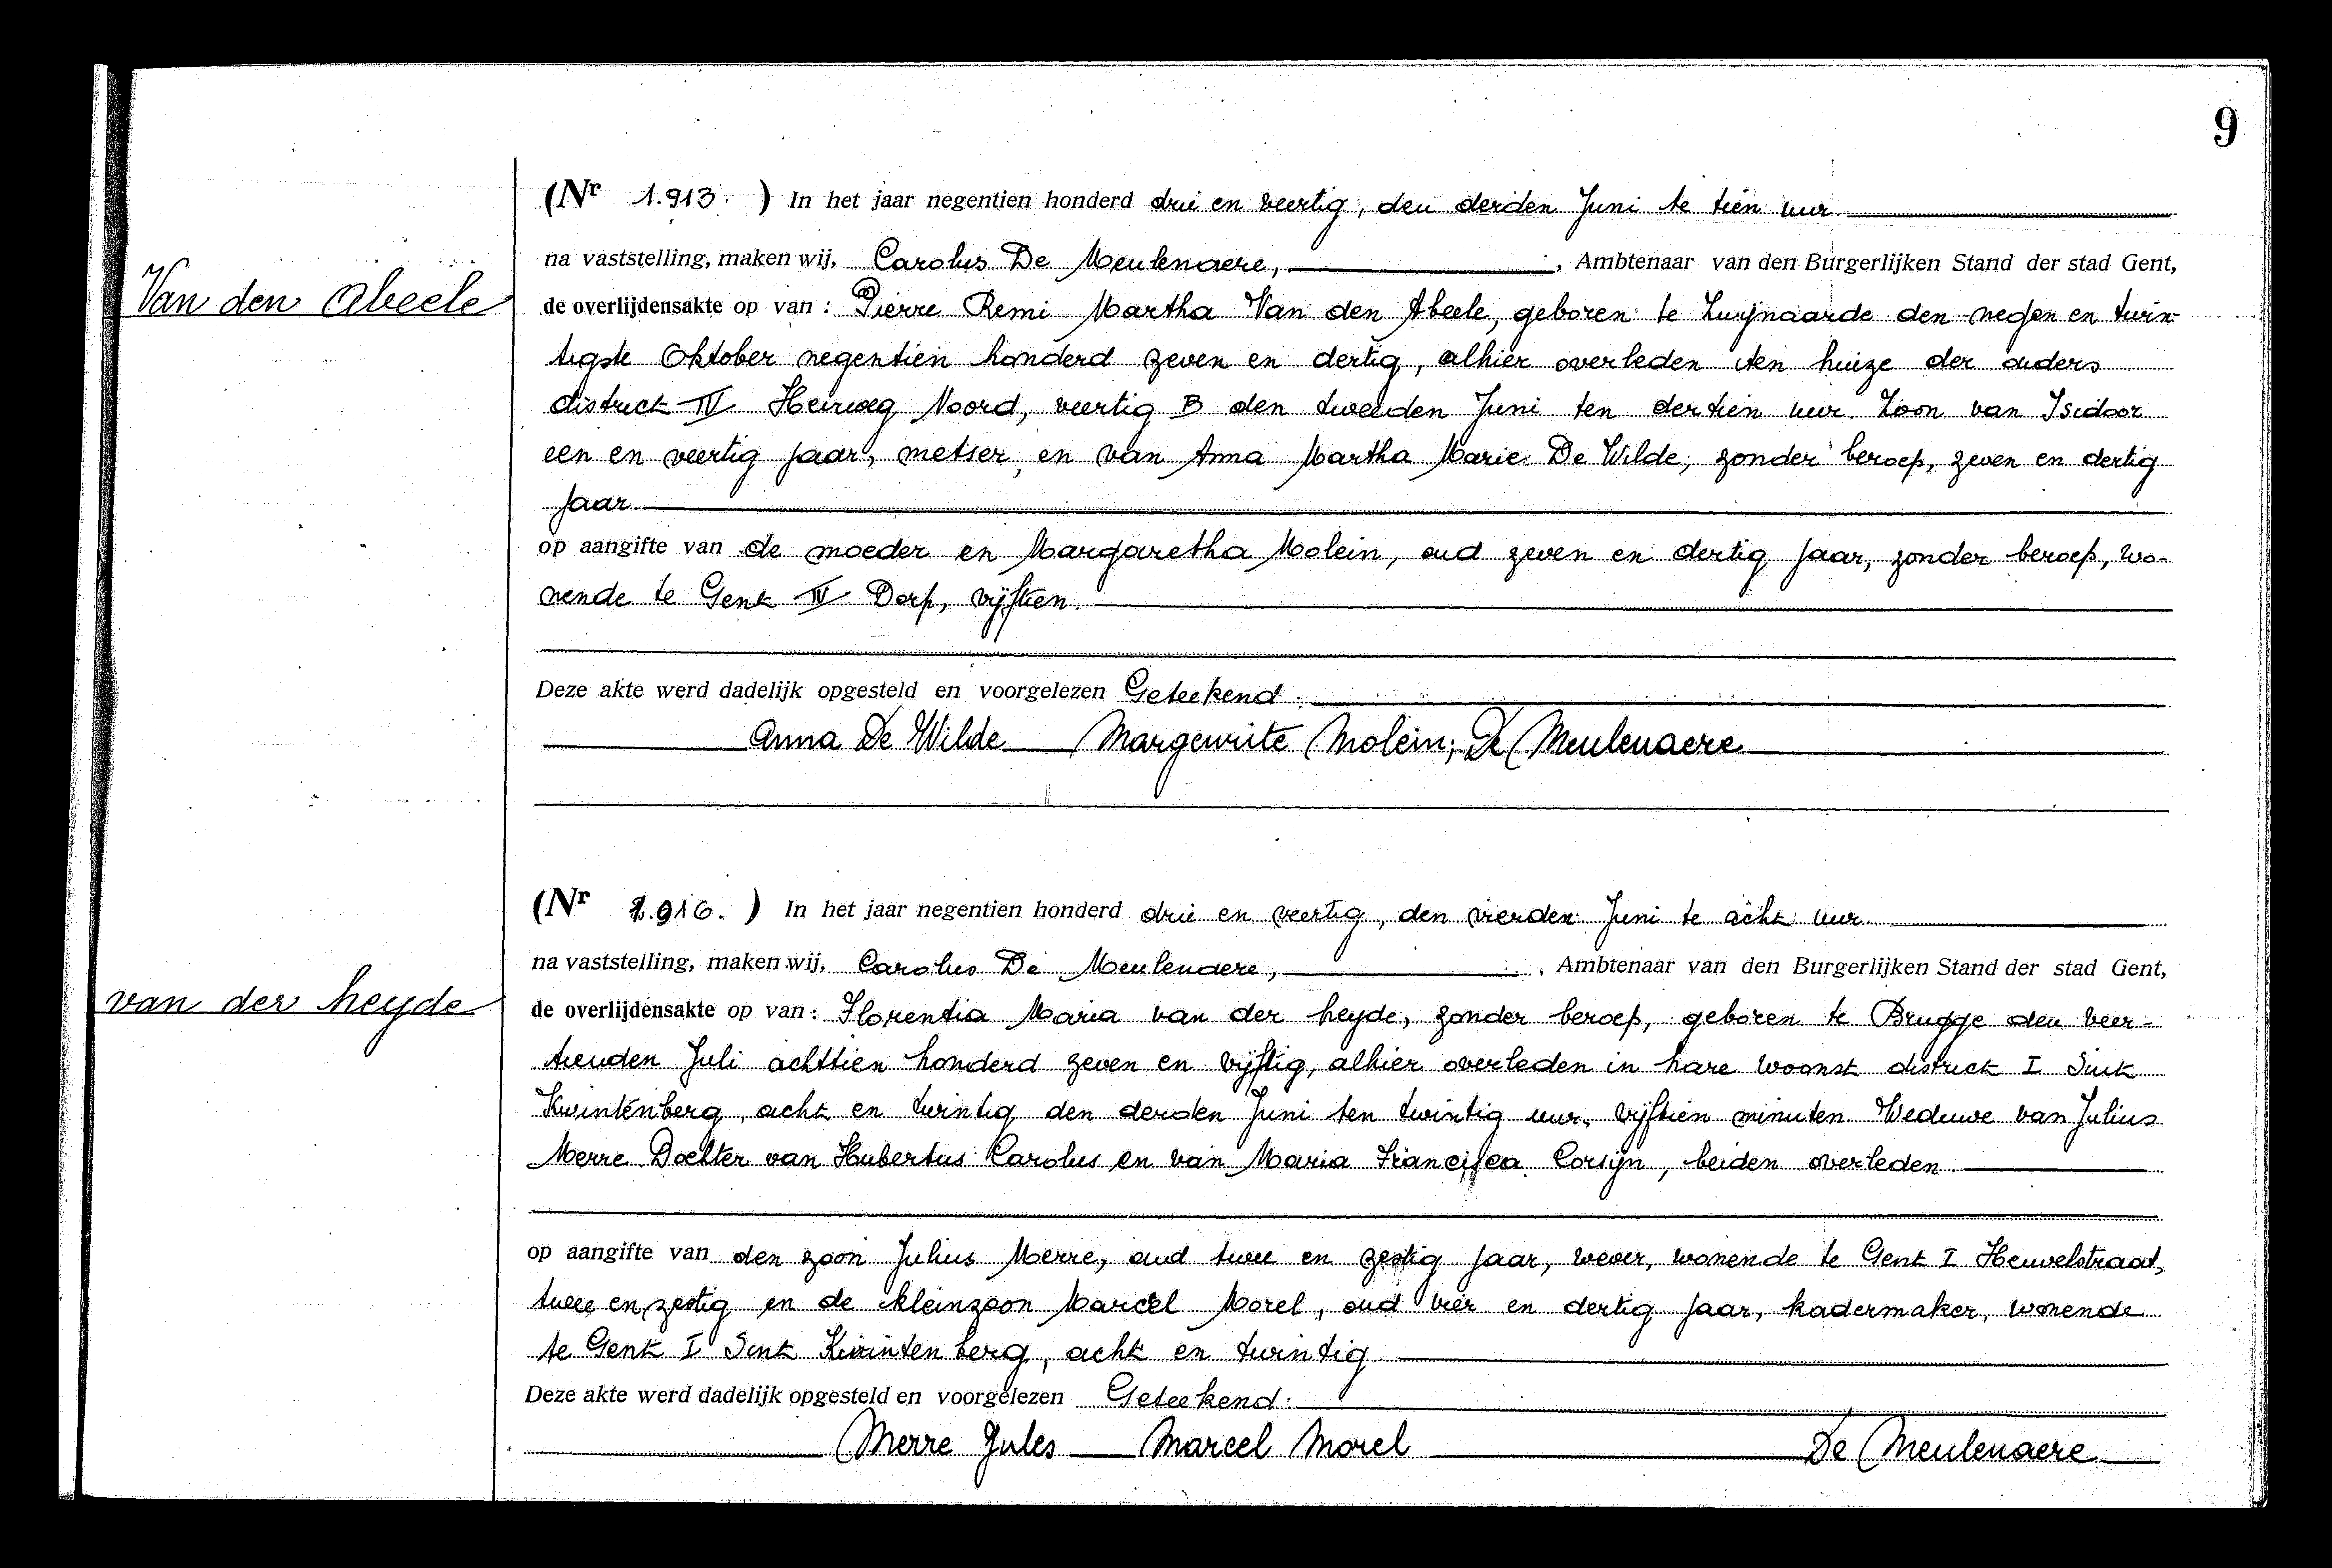 9
(Nr 1.913. ) In het jaar negentien honderd drie en veertig, den derden Juni te tien uur
na vaststelling, maken wij, Carolus De Meulenaere, , Ambtenaar van den Burgerlijken Stand der stad Gent,
Van den Abeele
de overlijdensakte op van : Pierre Remi Martha Van den Abeele, geboren te Zwijnaarde den negen en twin-
tigste Oktober negentien honderd zeven en dertig, alhier overleden ten huize der ouders
district IV Heirweg Noord, veertig B den tweeden Juni ten dertien uur. Zoon van Isidoor
een en veertig jaar, metser en van Anna Martha Marie De Wilde, zonder beroep, zeven en dertig
jaar
op aangifte van de moeder en Margaretha Molein, oud zeven en dertig jaar, zonder beroep, wo-
nende te Gent IV Dorp, vijftien
Deze akte werd dadelijk opgesteld en voorgelezen Geteekend :
Anna De Wilde Margewrite Molein, De Meulenaere
(Nr 1.916. ) In het jaar negentien honderd drie en veertig, den vierden Juni te acht uur
na vaststelling, maken wij, Carolus De Meulenaere, , Ambtenaar van den Burgerlijken Stand der stad Gent,
van der heyde
de overlijdensakte op van : Florentia Maria van der heyde, zonder beroep, geboren te Brugge den veer-
tienden Juli achttien honderd zeven en vijftig, alhier overleden in hare woonst district I Sint
Kwintenberg, acht en twintig den derden Juni ten twintig uur, vijftien minuten. Weduwe van Julius
Merre. Dochter van Hubertus Carolus en van Maria Francisca Corsijn, beiden overleden
op aangifte van den zoon Julius Merre, oud twee en zestig jaar, wever, wonende te Gent I Heuvelstraat,
twee en zestig en de kleinzoon Marcel Morel, oud vier en dertig jaar, kadermaker, wonende
te Gent I Sint Kwinten berg, acht en twintig
Deze akte werd dadelijk opgesteld en voorgelezen Geteekend :
Merre Jules Marcel Morel De Meulenaere